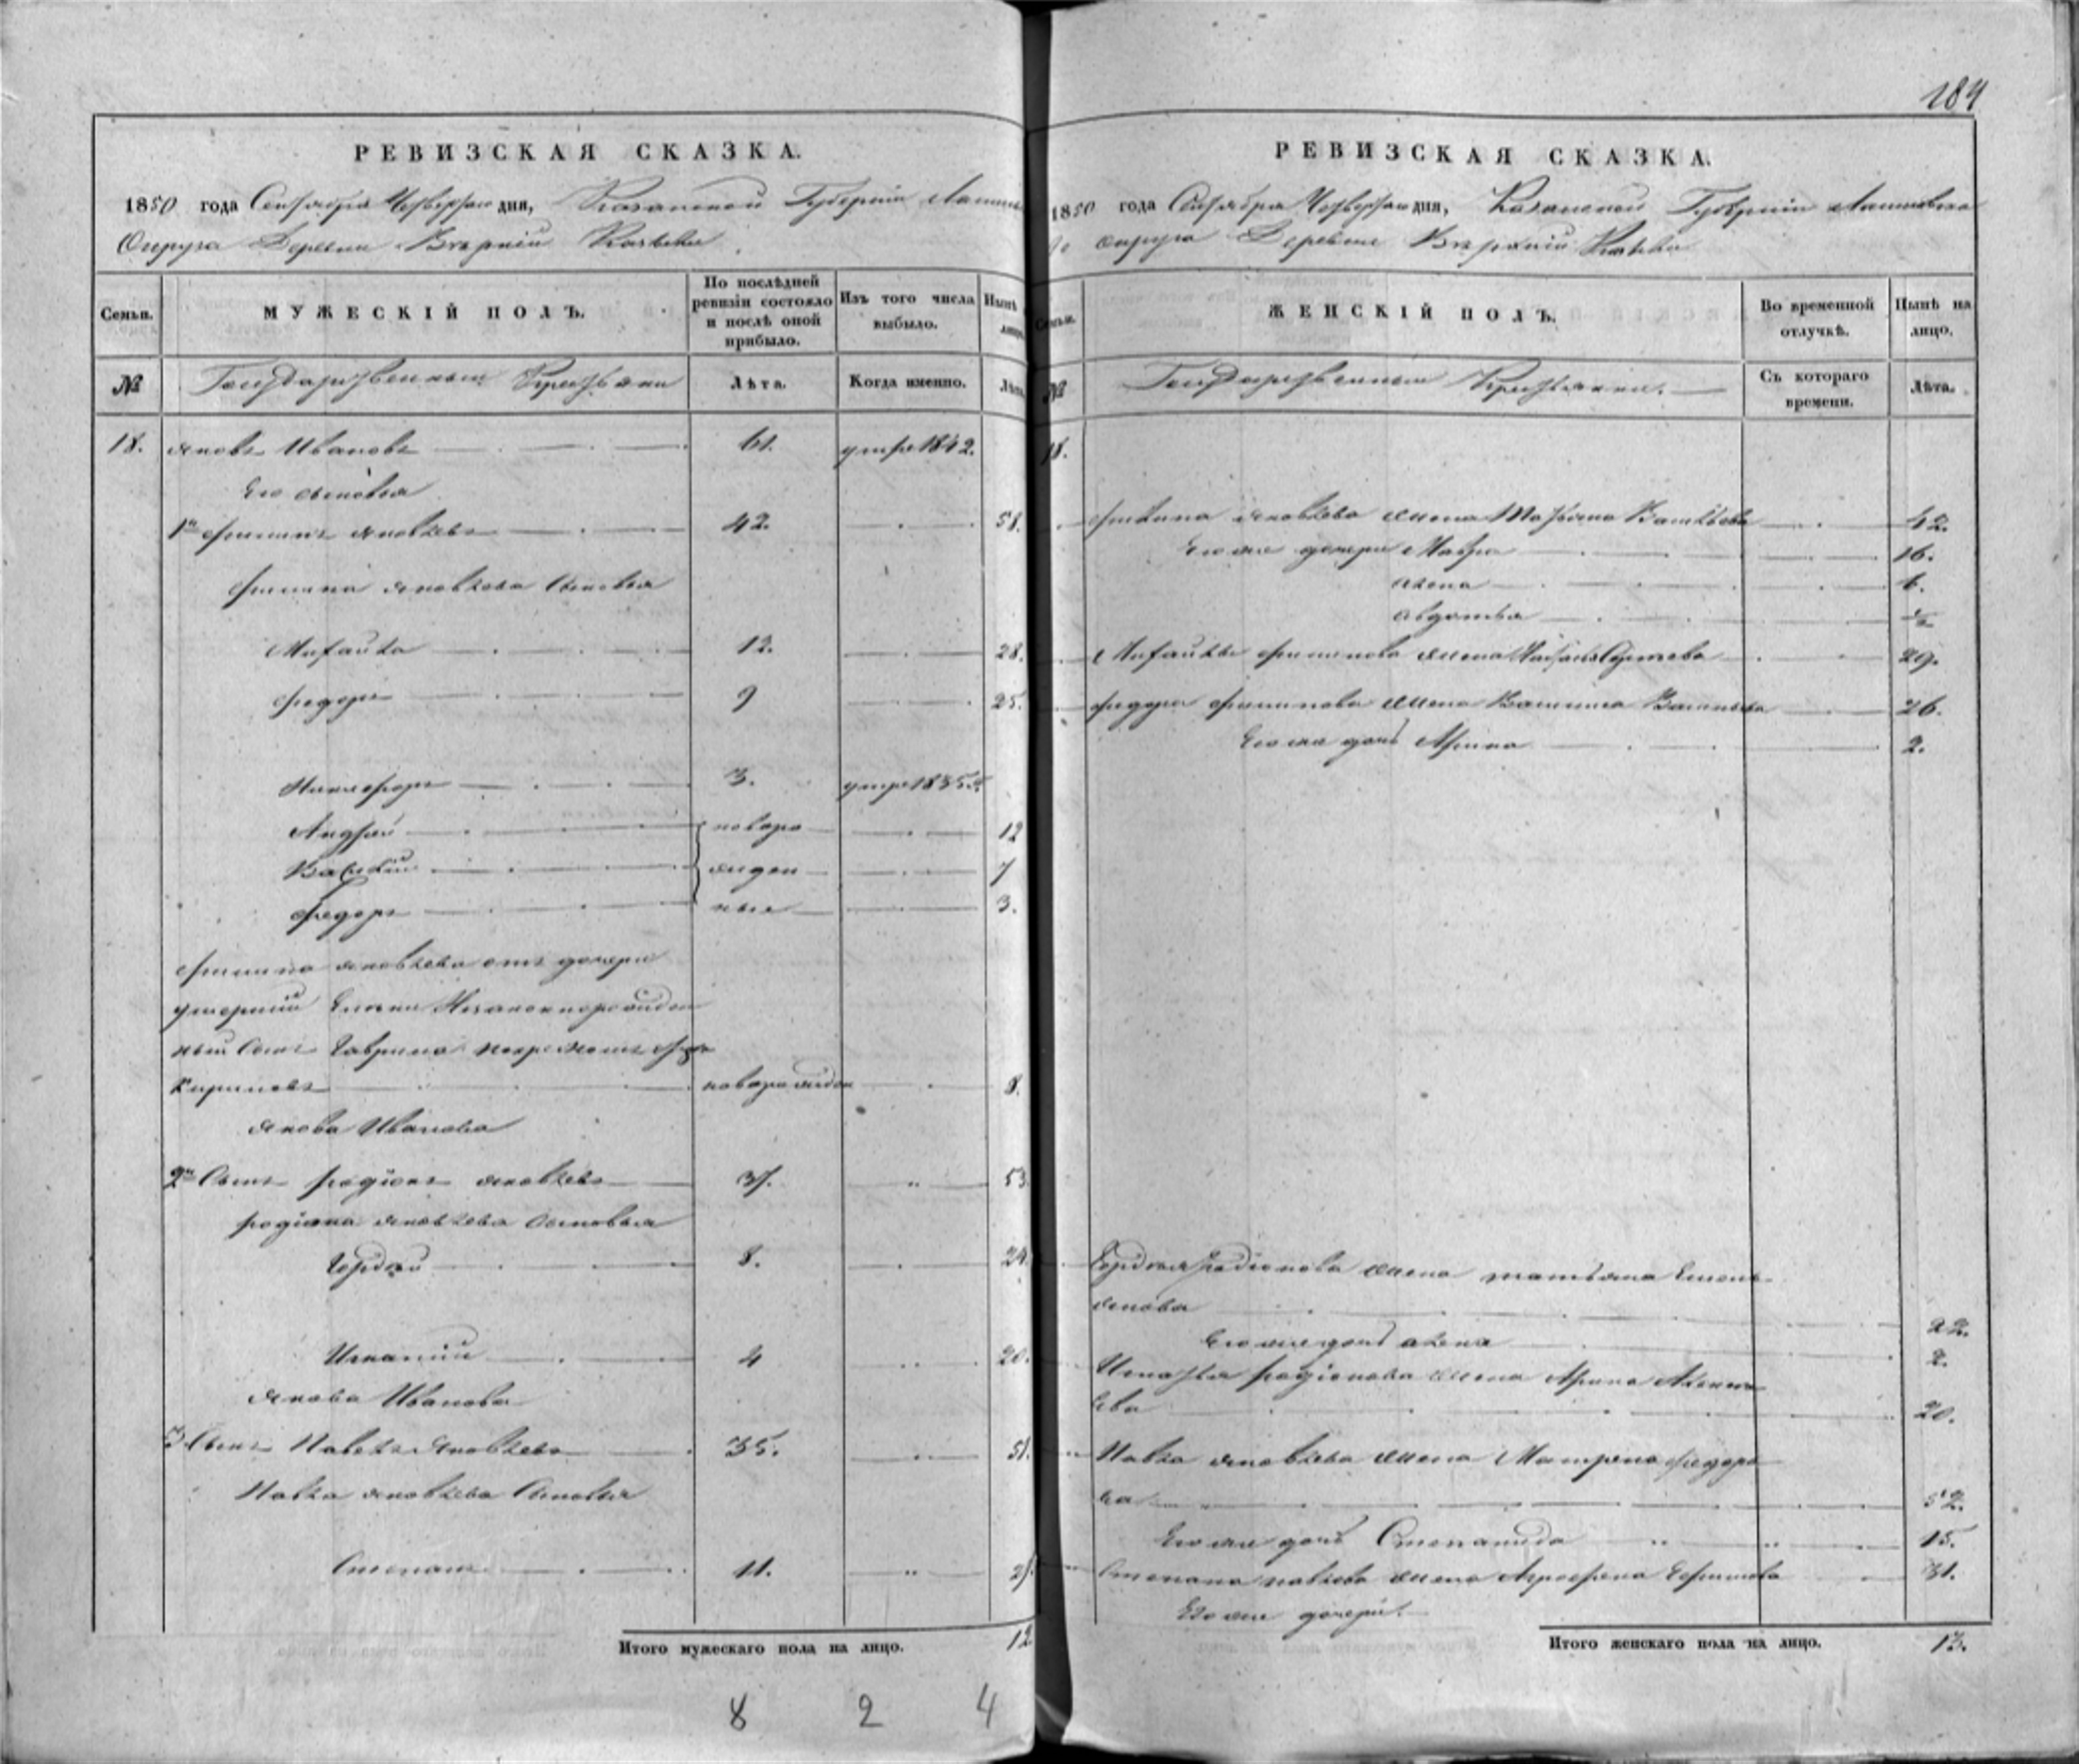 184
РЕВИЗСКАЯ СКАЗКА.
1850 года Сентября Четвертаго дня, Казанской Губерніи Лаишевс
Округа Деревни Верхній
Семьи.
МУЖЕСКІЙ ПОЛЪ.
По послѣдней ревизіи состояло и послѣ оной прибыло.
Изъ того числа выбыло.
Нынѣ на лицо.
№
Государственныи Крестьяни
Лѣта.
Когда именно.
Лѣта.
18. Яковъ Ивановъ 61. умре 1842.
Его сыновья
1й Филипъ Яковлевъ 42. 58.
Филипа Яковлева Сыновья
12. 28.
Федоръ 9 25.
Никифоръ 3. умре 1835.
Андрей новоро 12
Василий жден 7
Федоръ ные 3.
Филипа Яковлева отъ дочери
умершій Незаконнорожден
ный Сынъ Гаврила
Кириловъ новорожден 8.
Якова Иванова
2й Сынъ Родіонъ Яковлевъ 37. 53.
Родіона Яковлева Сыновья
Гордей 8. 24.
Игнатий 4 20.
Якова Иванова
3 Сынъ Павелъ Яковлевъ 35. 51.
Павла Яковлева Сыновья
Степанъ 11. 27.
Итого мужескаго пола на лицо. 12
8 2 4
РЕВИЗСКАЯ СКАЗКА.
1850 года Сентября Четвертаго дня, Казанской Губерніи Лаишевска
го округа Деревни Верхній
Семьи.
ЖЕНСКІЙ ПОЛЪ.
Во временной отлучкѣ.
Нынѣ на лицо.
№
Государственныи Крестьянки.
Съ котораго времени.
Лѣта.
18.
Филипа Яковлева жена Татьяна Васильева 42.
Его же дочери Мавра 16.
Алена 6.
Авдотья
Филипова жена 29.
Федора Филипова жена Василиса Васильева 26.
Его же дочь Арина 2.
Гордея Родіонова жена татьяна Емель
янова 22.
Его же дочь алена 2.
Игнатья Родіонова жена Арина Алексе
ева 20.
Павла Яковлева жена Матрена Федоро
ва 52.
Его же дочь Степанида 15.
Степана павлова жена Агрофена Ефимова 31.
Его же дочери.
Итого женскаго пола на лицо. 13.